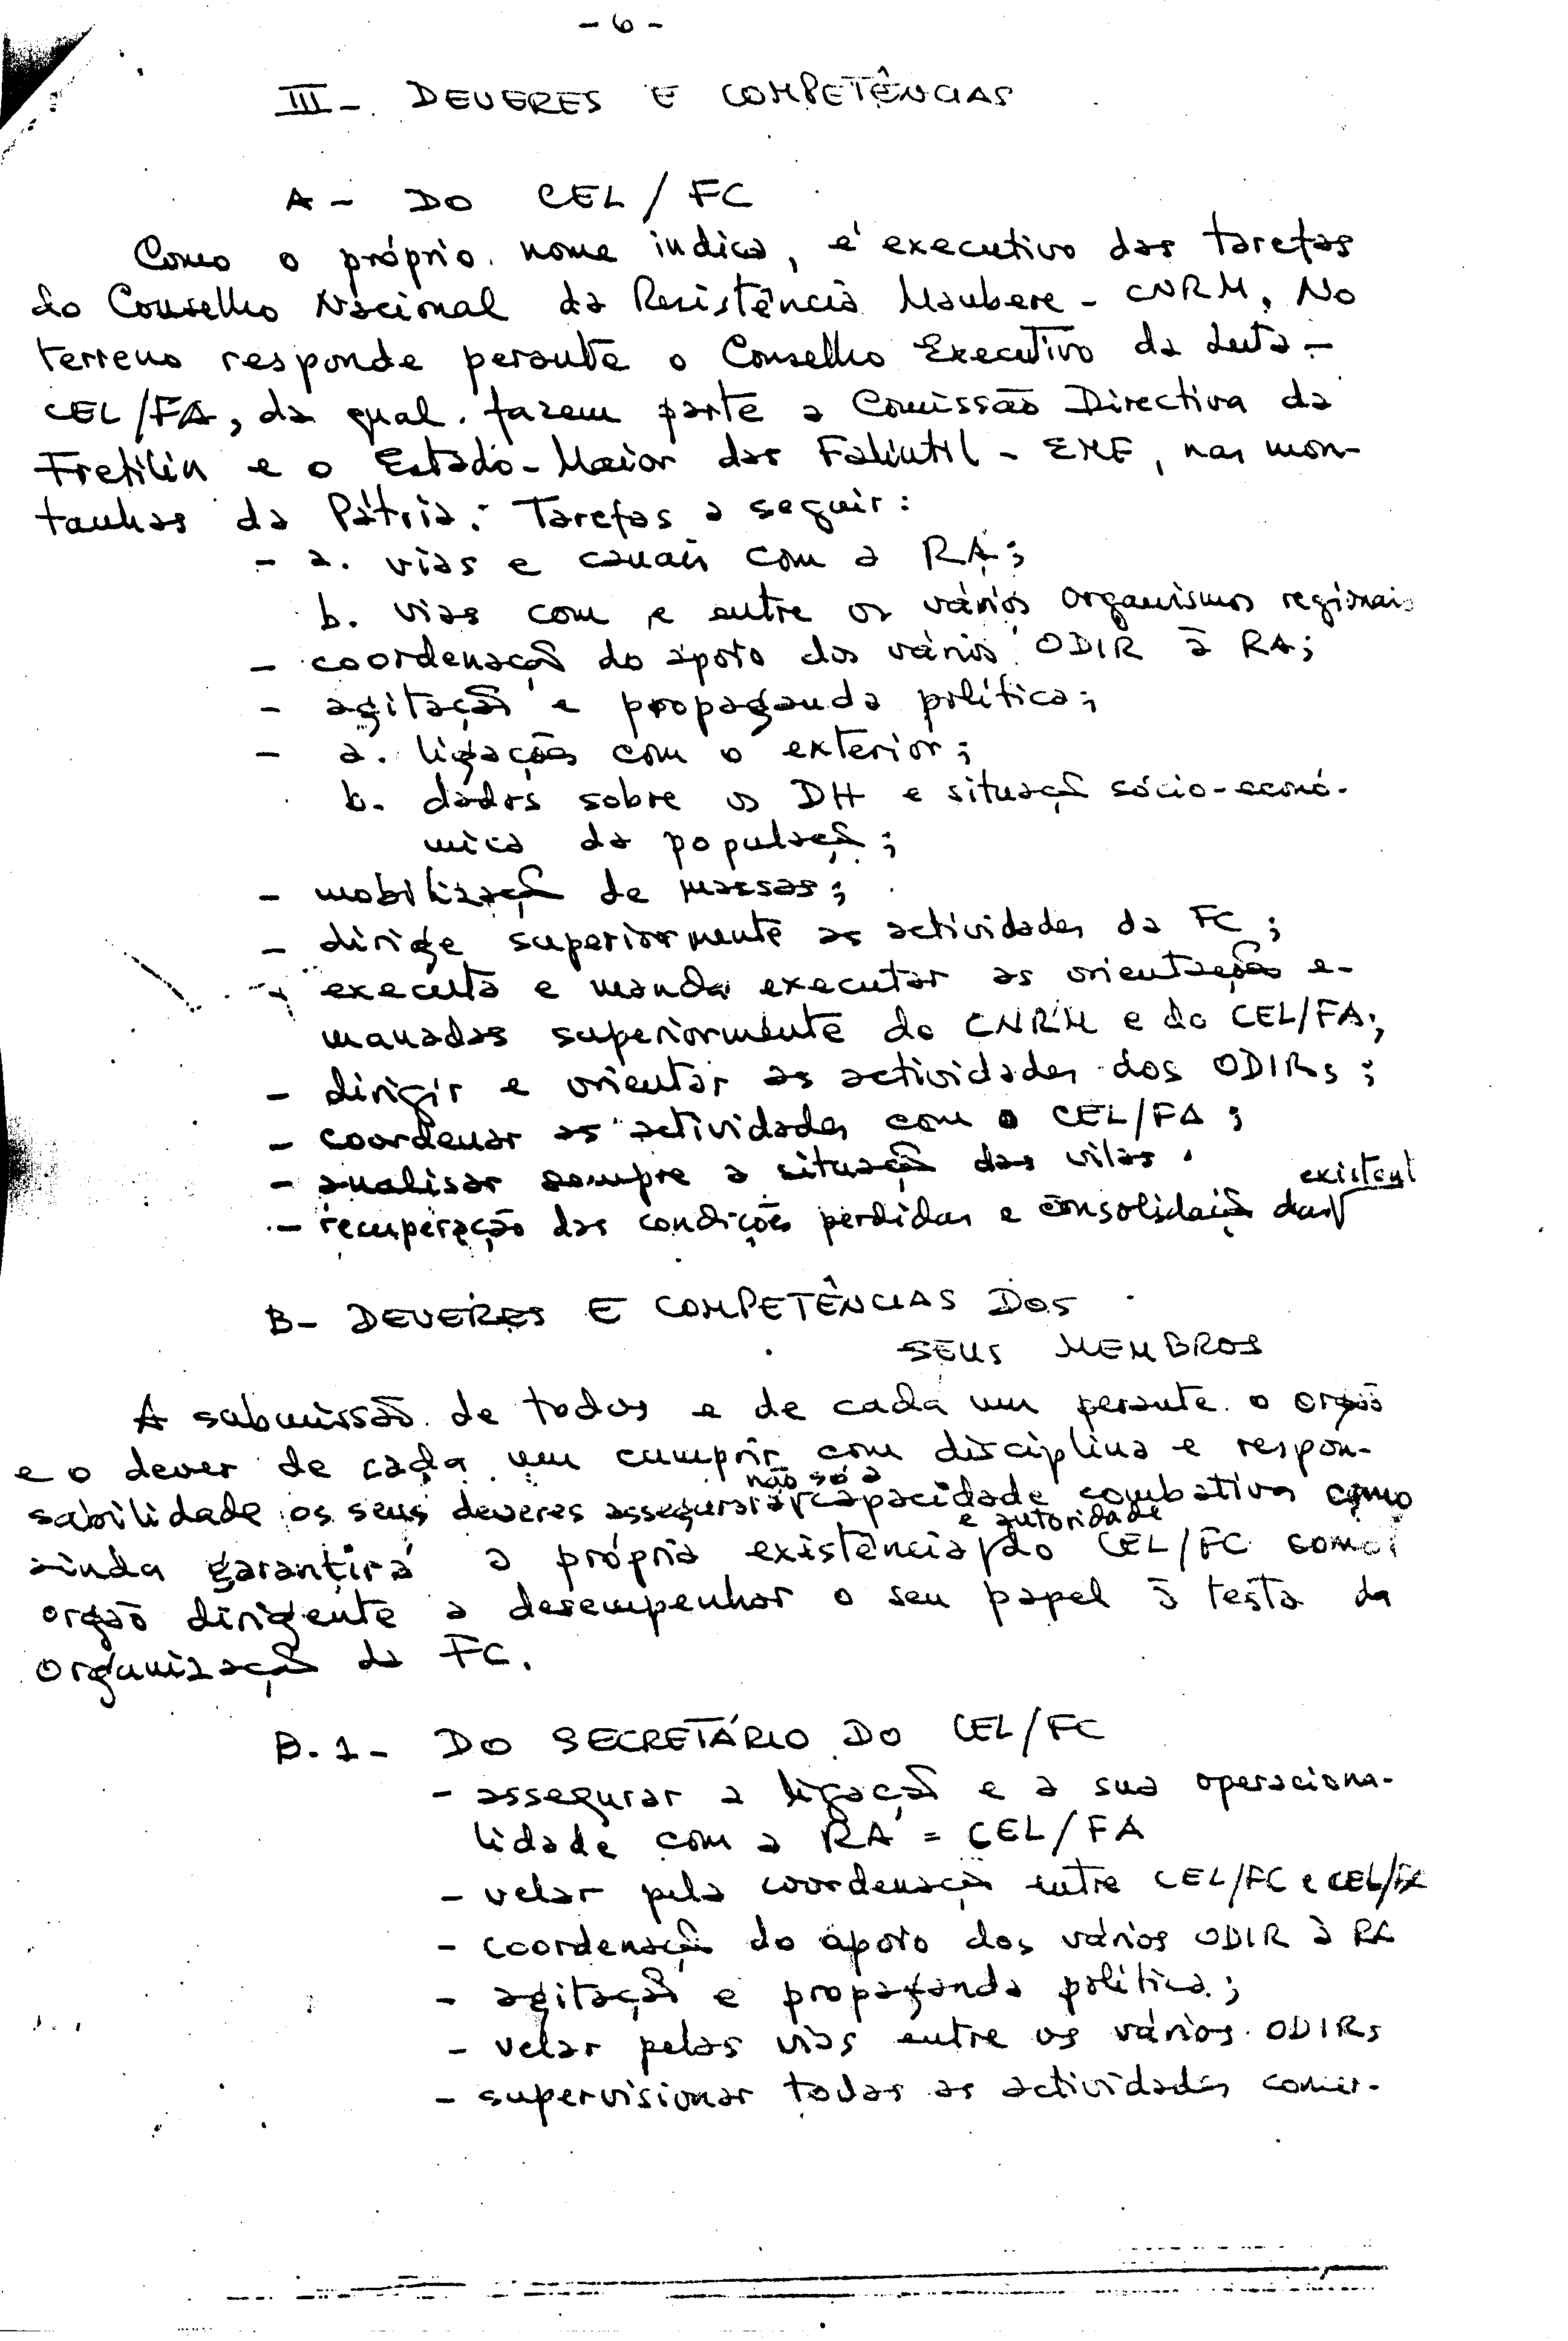 - 6 -
III - DEVERES E COMPETÊNCIAS
A - DO CEL / FC
Como o próprio nome indica, é executivo das tarefas
do Conselho Nacional da Resistência Maubere - CNRM. No
terreno responde perante o Conselho Executivo da Luta -
CEL/FA, da qual fazem parte a Comissão Directiva da
Fretilin e o Estado-Maior das Falintil - EMF, nas mon-
tanhas da Pátria. Tarefas a seguir:
- a. vias e canais com a RA;
b. vias com e entre os vários organismos regionais
- coordenação do apoio dos vários ODIR à RA;
- agitação e propaganda política;
- a. ligações com o exterior;
b. dados sobre os DH e situação sócio-econó-
mica da população;
- mobilização de massas;
- dirige superiormente as actividades da FC;
- executa e manda executar as orientações e-
manadas superiormente do CNRM e do CEL/FA;
- dirigir e orientar as actividades dos ODIRs;
- coordenar as actividades com o CEL/FA;
- analisar sempre a situação das vilas.
- recuperação das condições perdidas e consolidação das existent
B - DEVERES E COMPETÊNCIAS DOS
SEUS MEMBROS
A submissão de todos e de cada um perante o orgão
e o dever de cada um cumprir com disciplina e respon-
sabilidade os seus deveres assegurará não só a capacidade combativa como
ainda garantirá a própria existência e autoridade do CEL/FC como
orgão dirigente a desempenhar o seu papel à testa da
organização da FC.
B.1 - DO SECRETÁRIO DO CEL/FC
- assegurar a ligação e a sua operaciona-
lidade com a RA = CEL/FA
- velar pela coordenação entre CEL/FC e CEL/FA
- coordenação do apoio dos vários ODIR à RA
- agitação e propaganda política;
- velar pelas vias entre os vários ODIRs
- supervisionar todas as actividades comer-